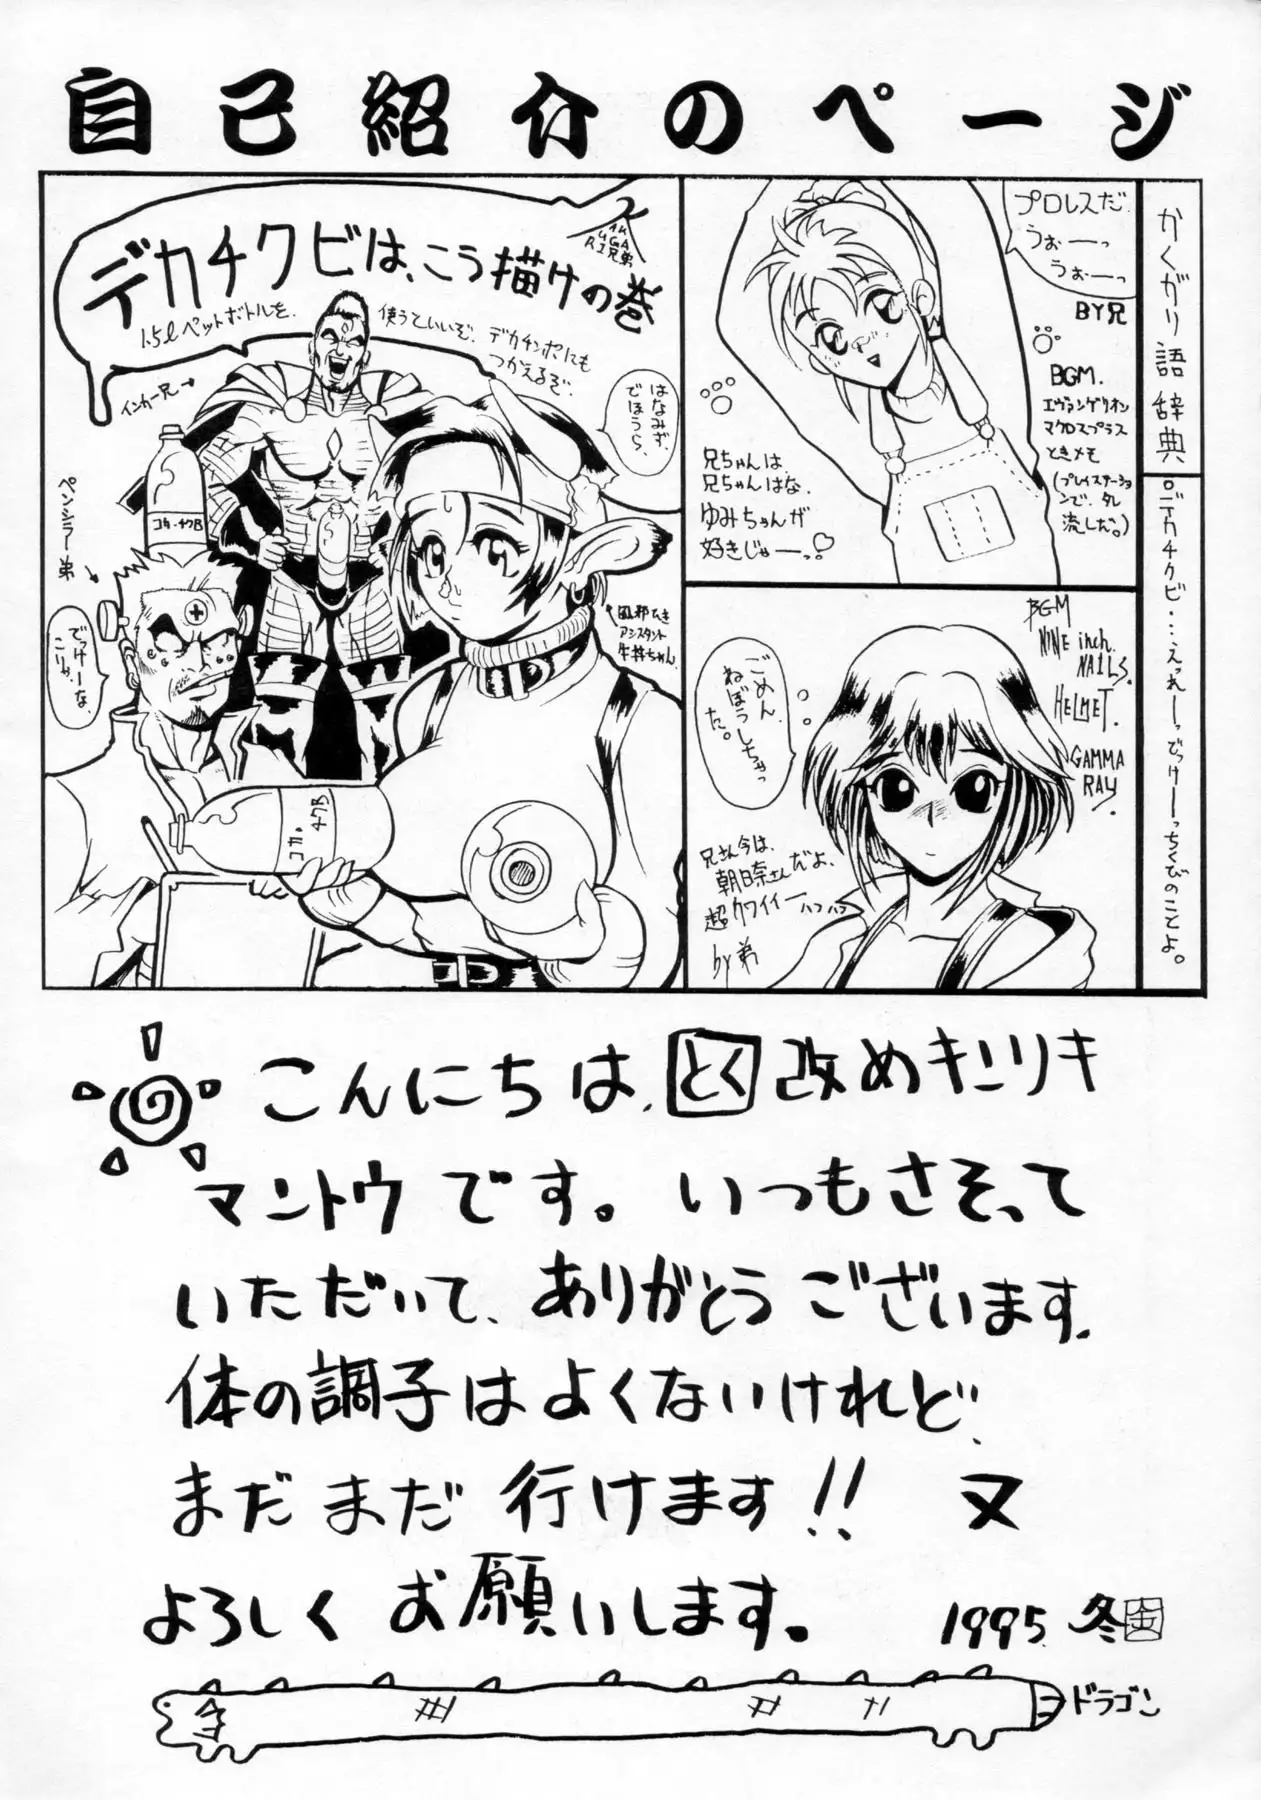 自己紹介のページ
デカチクビは、こう描けの巻
1.5ℓペットボトルを.
使うといいぞ.
デカチンポにも
つかえるぞ.
インカー兄→
はなみず.
でほうら.
ペンシラー弟
でっけーな
こりゃ.
コカ・チクB
コカ・チクB
風邪ひき
アシスタント
牛丼ちゃん.
プロレスだ.
うぉーっ
うぉーっ
BY兄
BGM.
エヴァンゲリオン
マクロスプラス
ときメモ
(プレイステーショ
ンで、タレ
流しだ。)
兄ちゃんは.
兄ちゃんはな.
ゆみちゃんが
好きじゃーっ♡
BGM
NINE inch.
NAILS.
HELMET.
GAMMA
RAY.
ごめん.
ねぼうしちゃっ
た。
兄さん今は、
朝日奈さんだよ.
超クワイイーハフハフ
by弟
かくがり語辞典
°デカチクビ…えっれーっでっけーーっちくびのことよ。
こんにちは、とく改めキンリキ
マントウです。いつもさそって
いただいて、ありがとうございます.
体の調子はよくないけれど、
まだまだ行けます!!又
よろしくお願いします。
1995.冬 金
ドラゴン